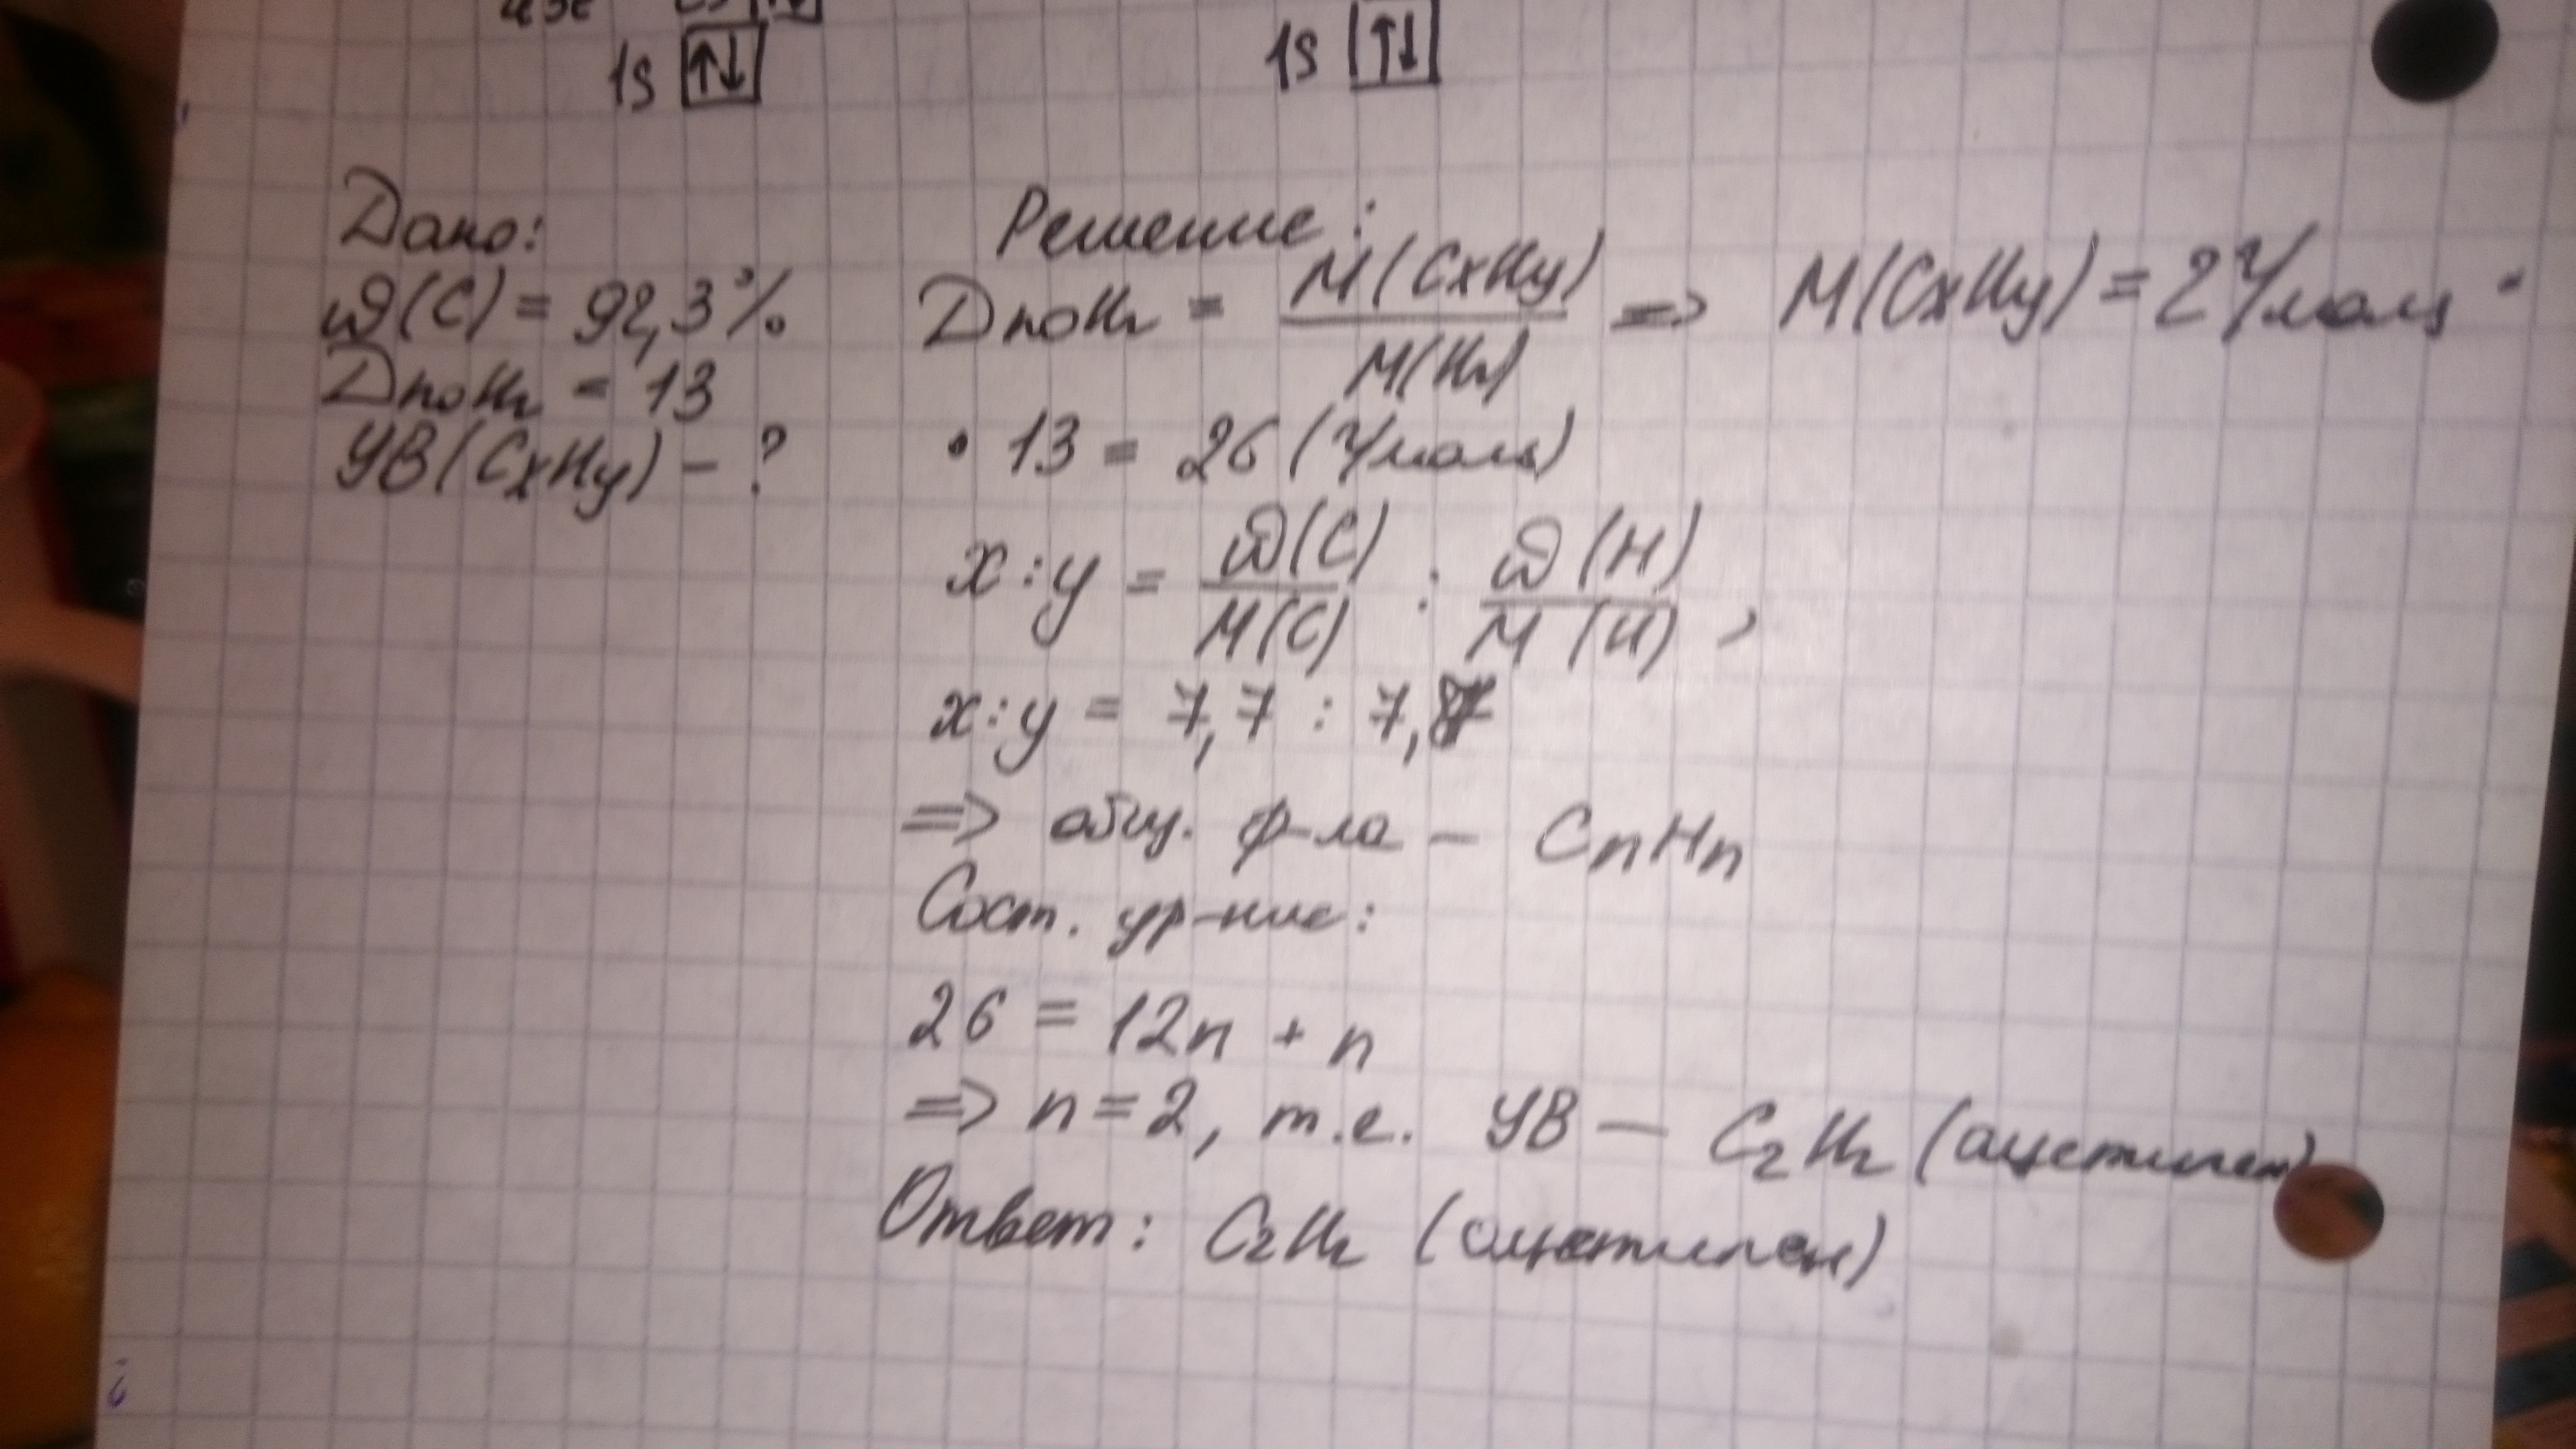 1s ↑↓ 1s ↑↓
Дано:
ω(C) = 92,3%
D по H₂ = 13
УВ(CxHy) – ?
Решение:
D по H₂ = M(CxHy) / M(H₂) => M(CxHy) = 2 г/моль ·
· 13 = 26 (г/моль)
x:y = ω(C) / M(C) : ω(H) / M(H) ,
x:y = 7,7 : 7,7
=> общ. ф-ла – CnHn
Сост. ур-ние:
26 = 12n + n
=> n=2, т.е. УВ – C₂H₂ (ацетилен)
Ответ: C₂H₂ (ацетилен)